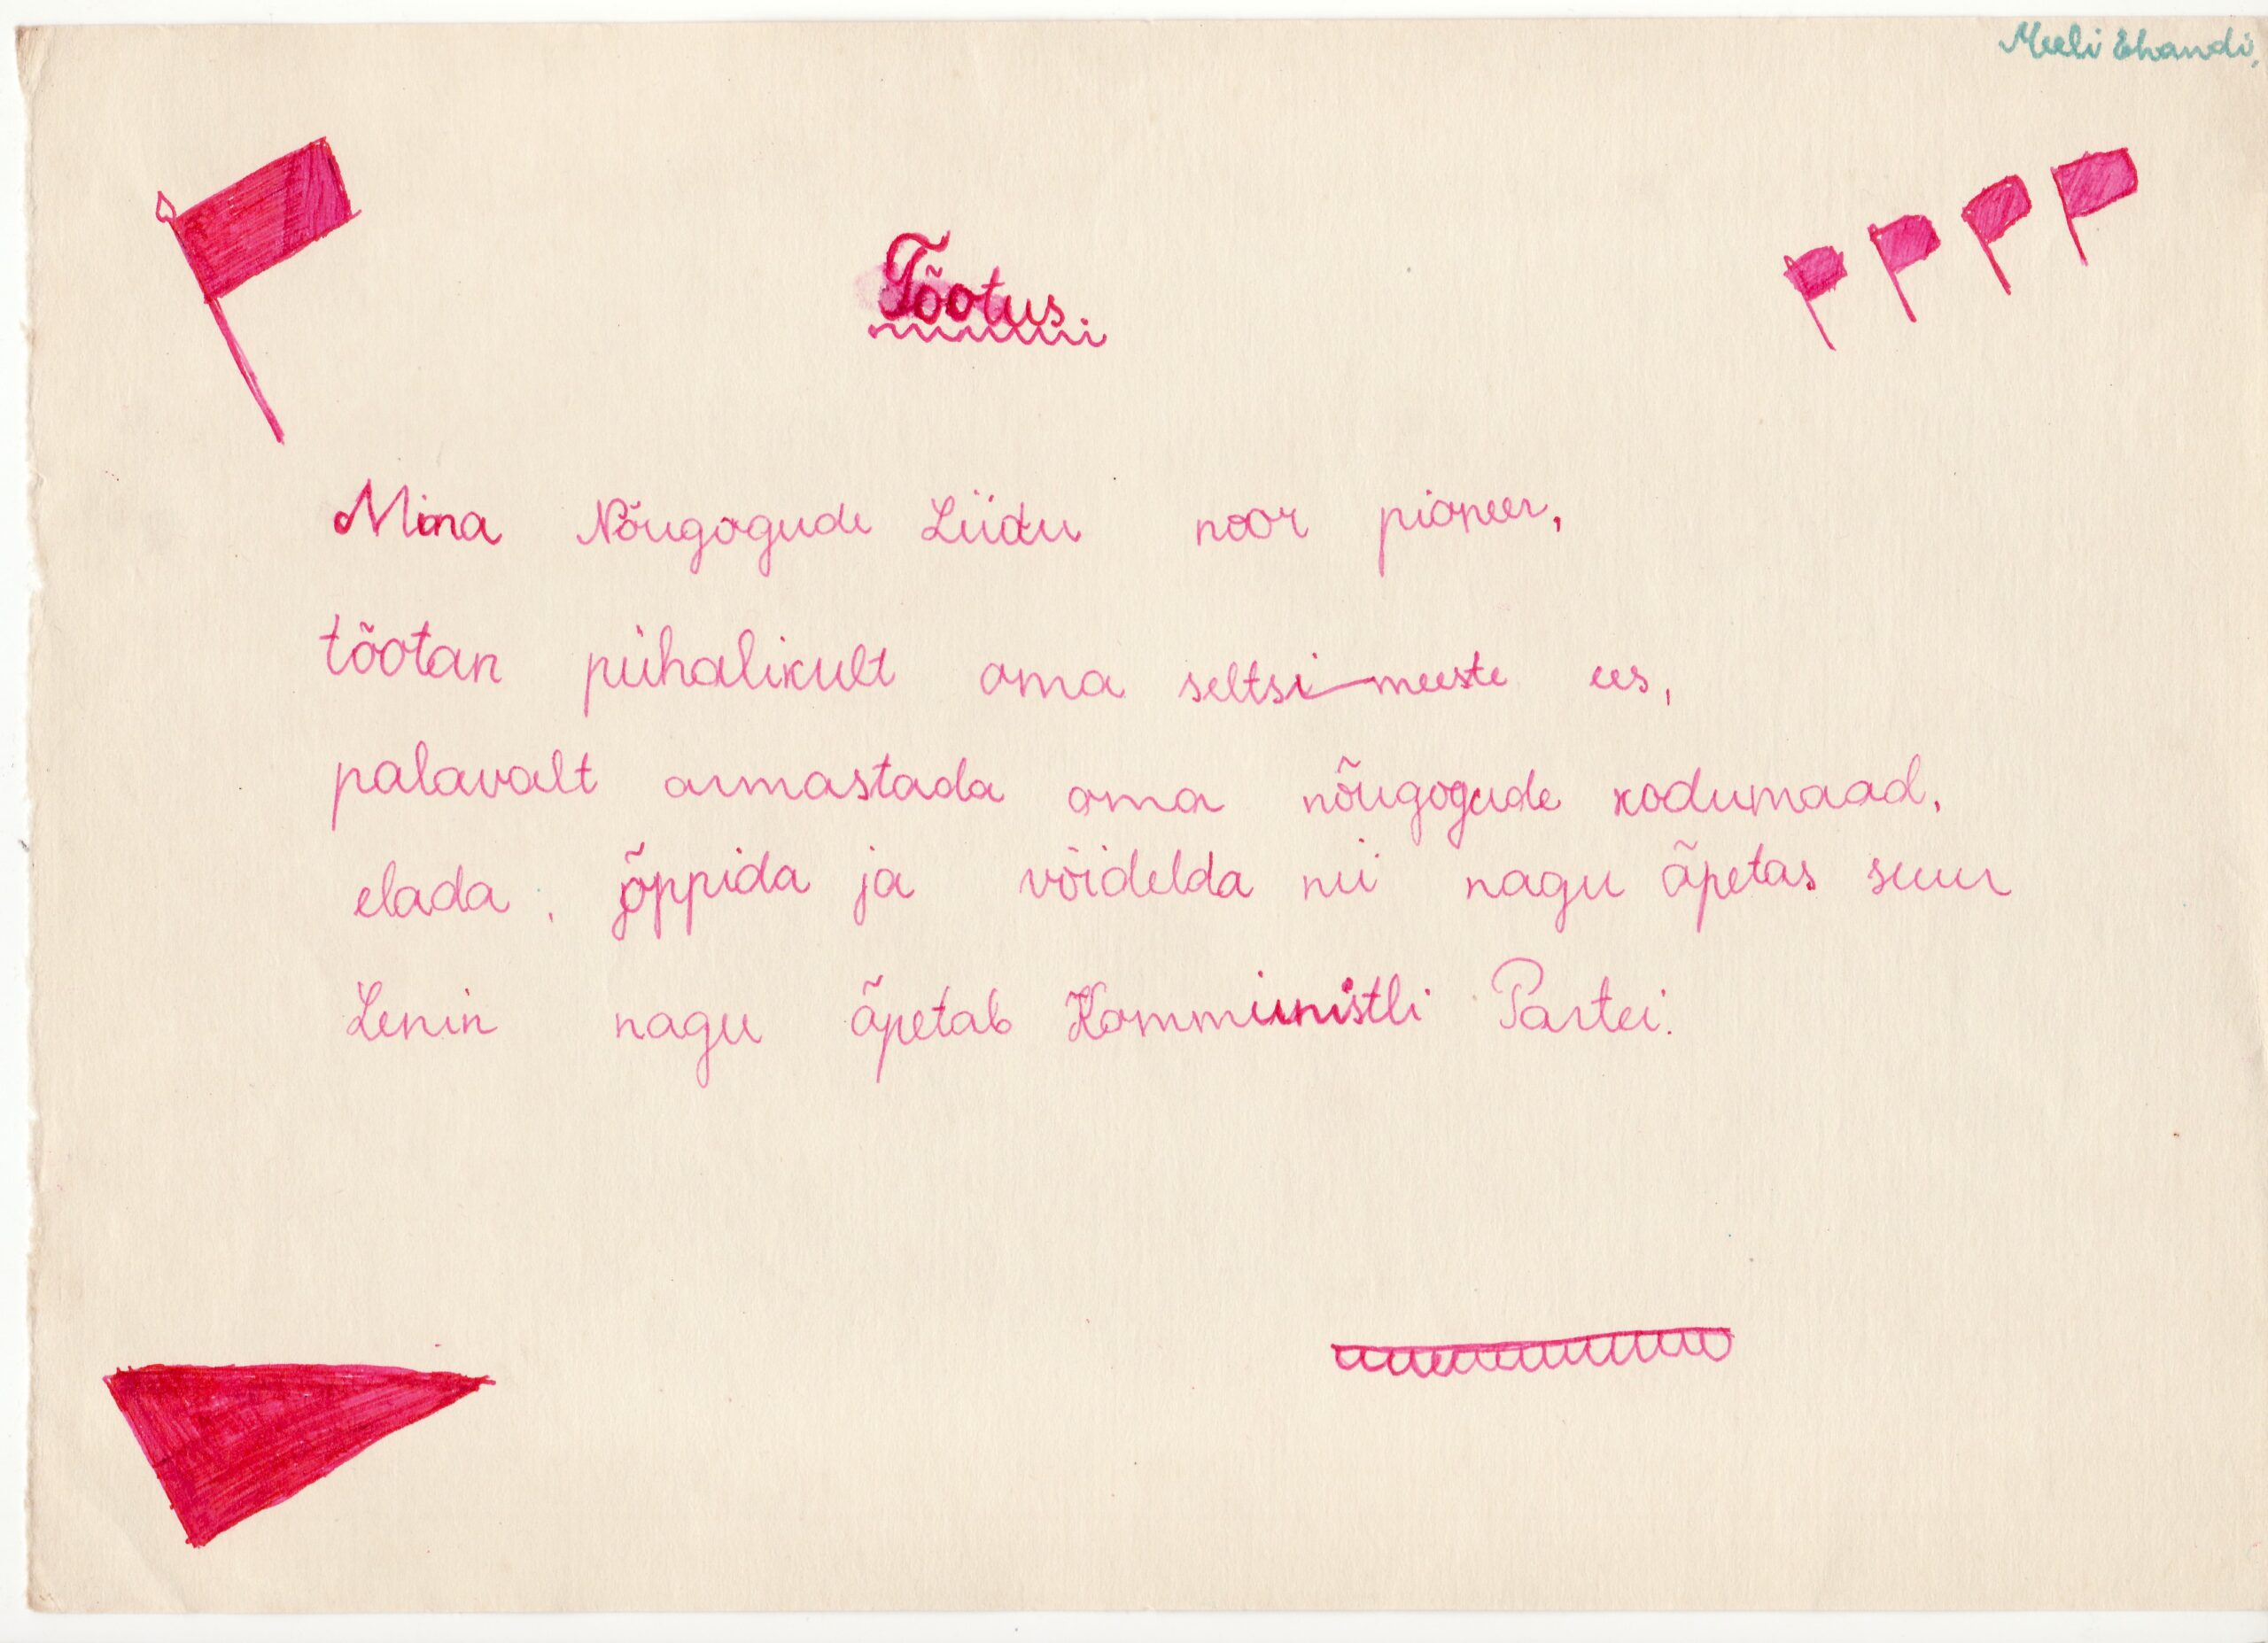 Meeli Ehandi,
Tõotus
Mina Nõugogude Liidu noor pioneer,
tõotan pühalikult oma seltsi-meeste ees,
palavalt armastada oma nõugogude kodumaad,
elada, õppida ja võidelda nii nagu õpetas suur
Lenin nagu õpetab Kommunistli Partei.